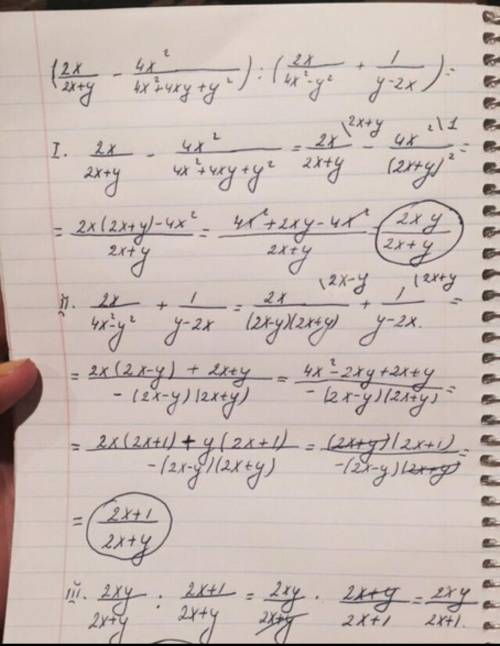 (2x/(2x+y) - 4x²/(4x²+4xy+y²)) : (2x/(4x²-y²) + 1/(y-2x)) =
I. 2x/(2x+y) - 4x²/(4x²+4xy+y²) = 2x/(2x+y) \2x+y - 4x²/(2x+y)² \1 =
= (2x(2x+y)-4x²)/(2x+y) = (4x²+2xy-4x²)/(2x+y) = 2xy/(2x+y)
II. 2x/(4x²-y²) + 1/(y-2x) = 2x/((2x-y)(2x+y)) \2x-y + 1/(y-2x.) \2x+y =
= (2x(2x-y) + 2x+y)/(-(2x-y)(2x+y)) = (4x²-2xy+2x+y)/(-(2x-y)(2x+y)) =
= (2x(2x+1) + y(2x+1))/(-(2x-y)(2x+y)) = ((2x+y)(2x+1))/(-(2x-y)(2x+y)) =
= (2x+1)/(2x+y)
III. 2xy/(2x+y) : (2x+1)/(2x+y) = 2xy/(2x+y) · (2x+y)/(2x+1) = 2xy/(2x+1.)